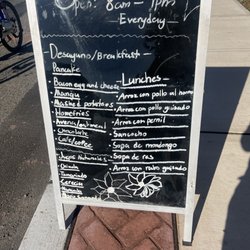 Open: 8am - 7pm
Everyday -
Desayuno/Breakfast -
Pancake
Bacon egg and cheese
Mangu
Mashed potatoes
Homefries
Avena/oatmeal
Chocolate
Café/coffee
Jugos Naturales
Chinola
Tamarindo
Cereza
Limonada
- Lunches -
- Arroz con pollo al horno
- Arroz con pollo guisado
- Arroz con pernil
- Sancocho
- Sopa de mondongo
- Sopa de res
- Arroz con rabo guisado